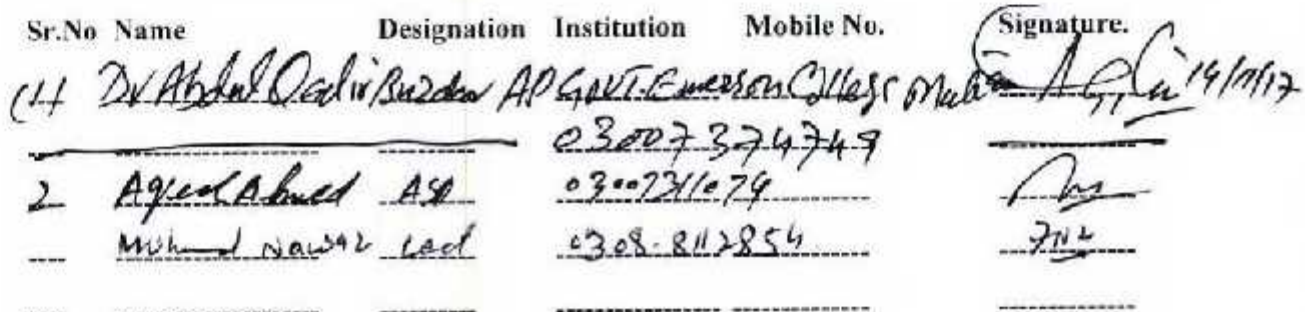 Sr.No Name Designation Institution Mobile No. Signature.
(1) Dr Abdul Qadir Buzdar AP GOVT. Emerson College Multan 14/11/17
03007374749
2 Aqeel Ahmed ASP 03007311079
Nawaz Lect 0308-8112854